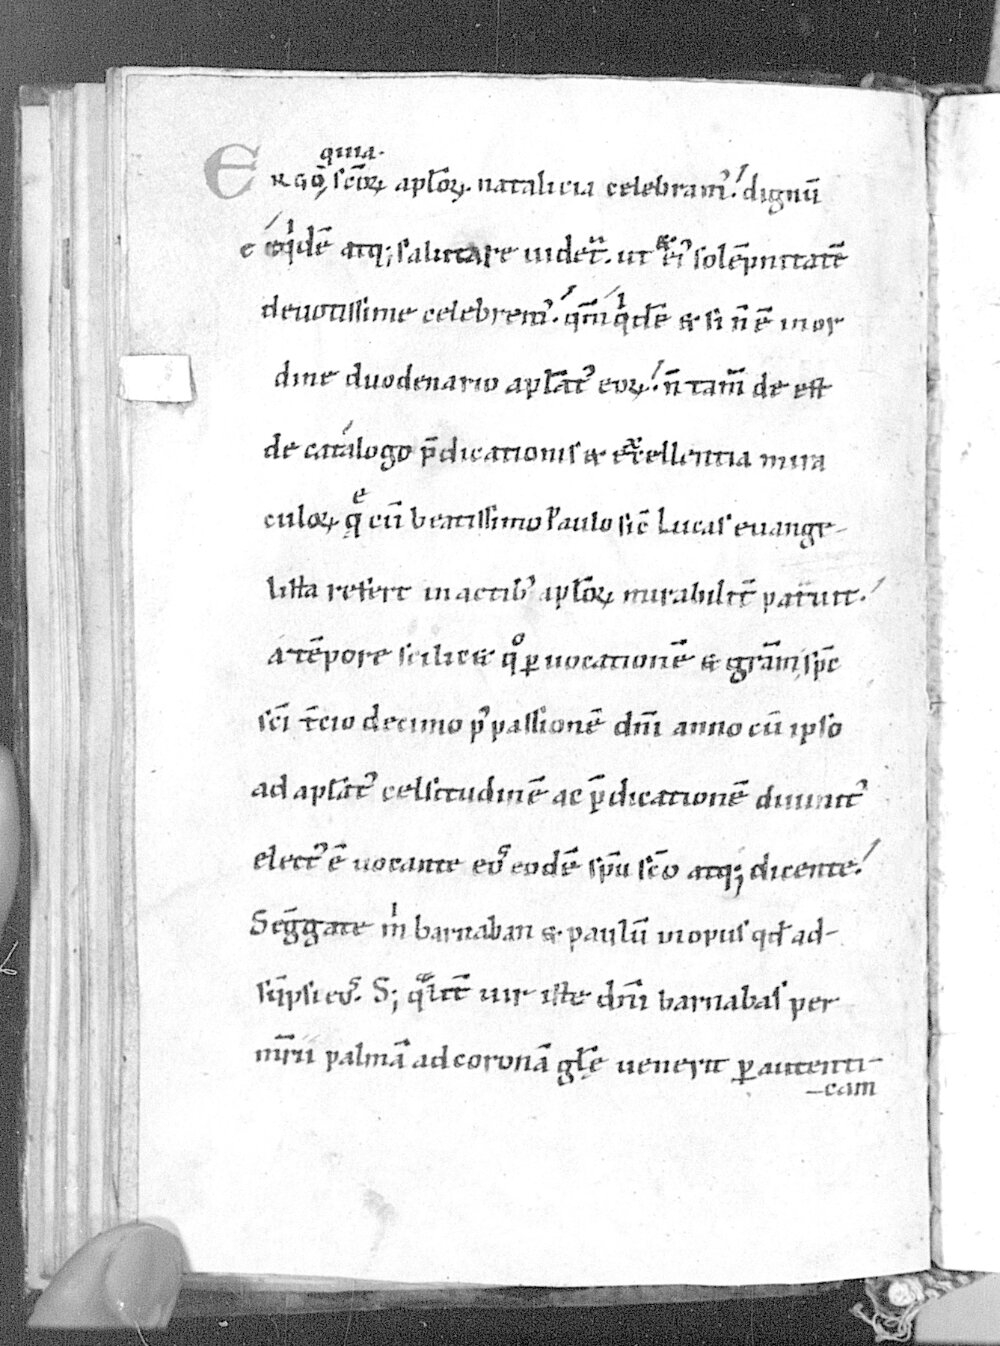 quia.
ERGO, sc̄oꝝ apl̄oꝝ. natalicia celebram᷒. dignū
e eq̇dē atq; salutare uidet̄. ut & ei᷒ solēpnitatē
deuotissime celebrem᷒. qm̄ q̇dē & si n̄ ē in or
dine duodenario apl̄at᷒ eoꝝ. n̄ tam̄ de est
de catálogo p̄dicationis & excellentia mira
culoꝝ qͤ cū beatissimo Paulo sic̄ Lucas euange-
lista refert in actib᷒ apl̄oꝝ mirabilit̄ patuit.
á tēpore scilic& qͦ ꝑ uocationē & grām sp̄c
sc̄i t̄cio decimo p᷒ passionē dn̄i anno cū ipso
ad apl̄at᷒ celsitudinē ac p̄dicationē diuinit᷒
elect᷒ ē uocante eos eodē sp̄u sc̄o atq; dicente.
Seḡgate m̍ barnaban & paulū in opus qd̄ ad-
sūpsi eos. S; qͣlit̄ uir iste dn̄i barnabas per
mr̄ii palmā ad coronā gl̄e uenerit ꝑ autenti-
-cam